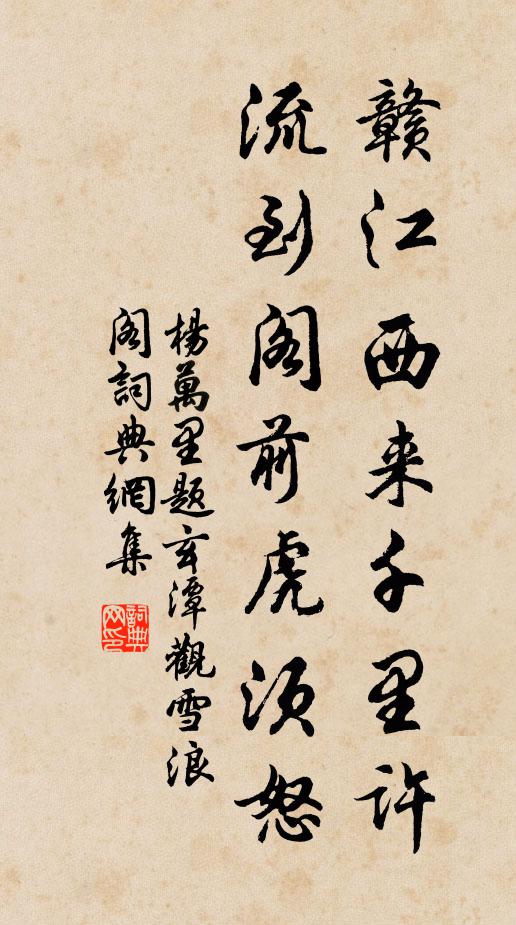 赣江西来千里许
流到阁前虎须怒
楊萬里題玄潭觀雪浪
阁詞典網集
詞典网印